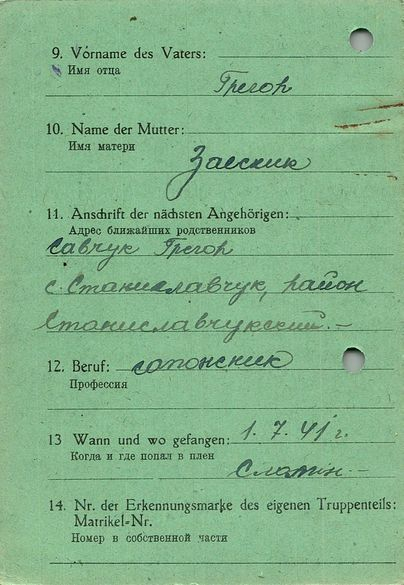 9. Vorname des Vaters:
Имя отца
Грегор
10. Name der Mutter:
Имя матери
Заесник
11. Anschrift der nächsten Angehörigen:
Адрес ближайших родственников
Савчук Грегор
с. Станиславчук, район
Станиславчукский. –
12. Beruf: сапожник
Профессия
13 Wann und wo gefangen: 1. 7. 41 г.
Когда и где попал в плен
Слоним –
14. Nr. der Erkennungsmarke des eigenen Truppenteils:
Matrikel-Nr.
Номер в собственной части